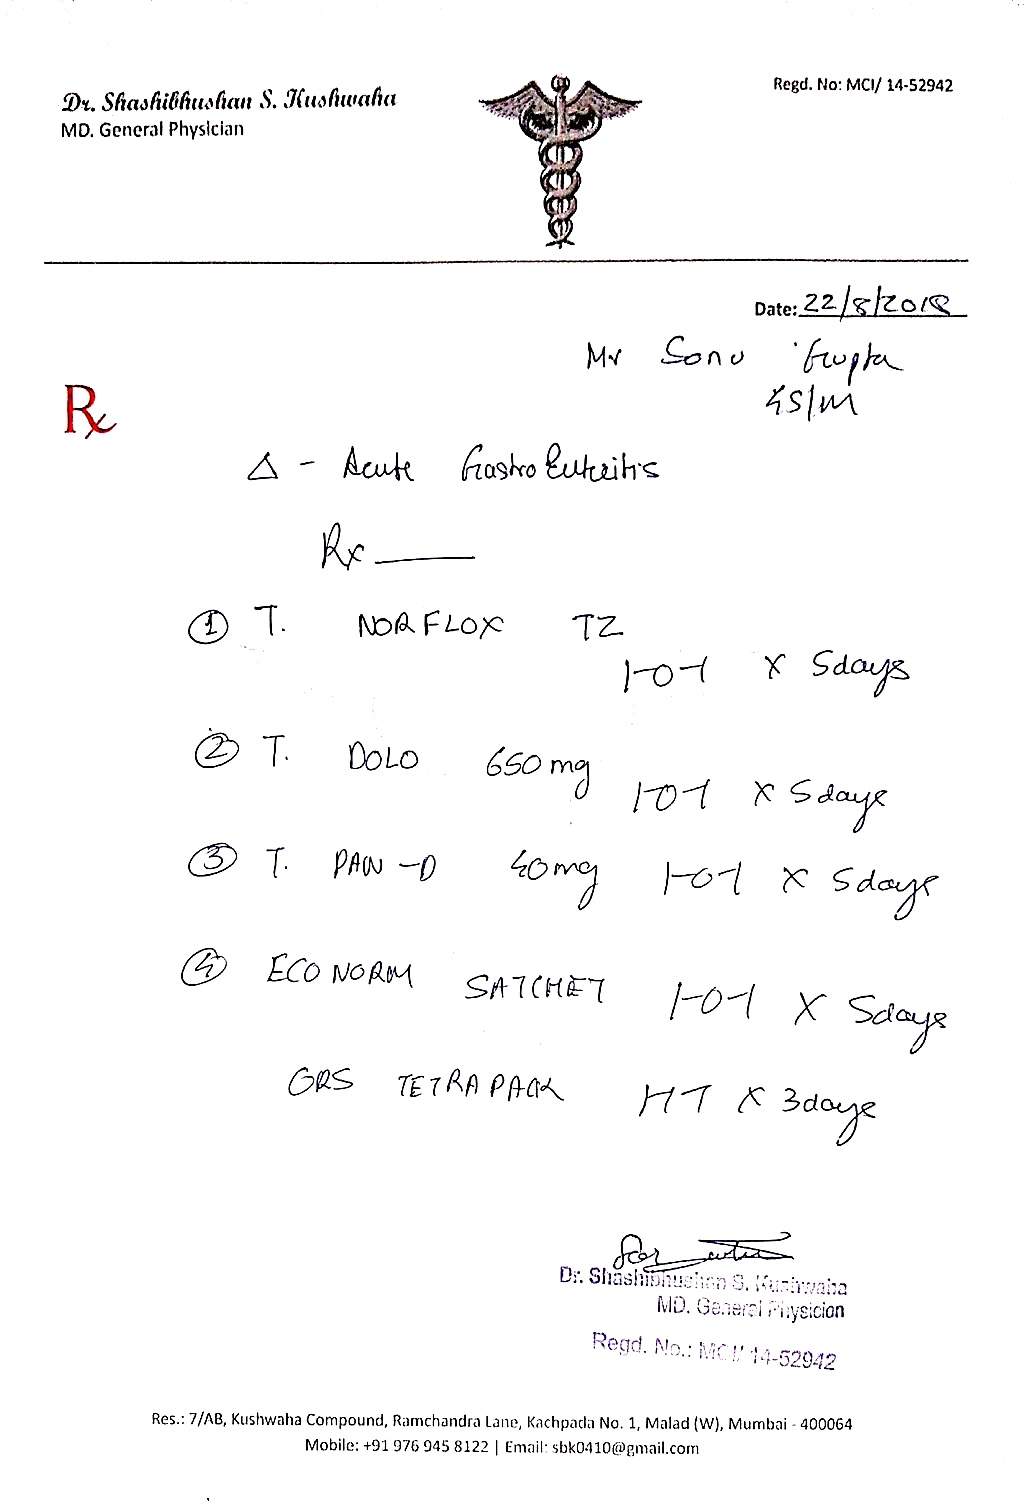 Dr. Shashibhushan S. Kushwaha
MD. General Physician
Regd. No: MCI/ 14-52942
Date: 22/8/2018
Mr Sonu Gupta
45/M
Rx
Δ - Acute Gastro Enteritis
Rx
① T. NORFLOX TZ
1-0-1 X 5days
② T. DOLO 650mg 1-0-1 X 5days
③ T. PAN-D 40mg 1-0-1 X 5days
④ ECONORM SATCHET 1-0-1 X 5days
ORS TETRAPACK X 3days
Dr. Shashibhushan S. Kushwaha
MD. General Physician
Regd. No.: MCI/ 14-52942
Res.: 7/AB, Kushwaha Compound, Ramchandra Lane, Kachpada No. 1, Malad (W), Mumbai - 400064
Mobile: +91 976 945 8122 | Email: sbk0410@gmail.com